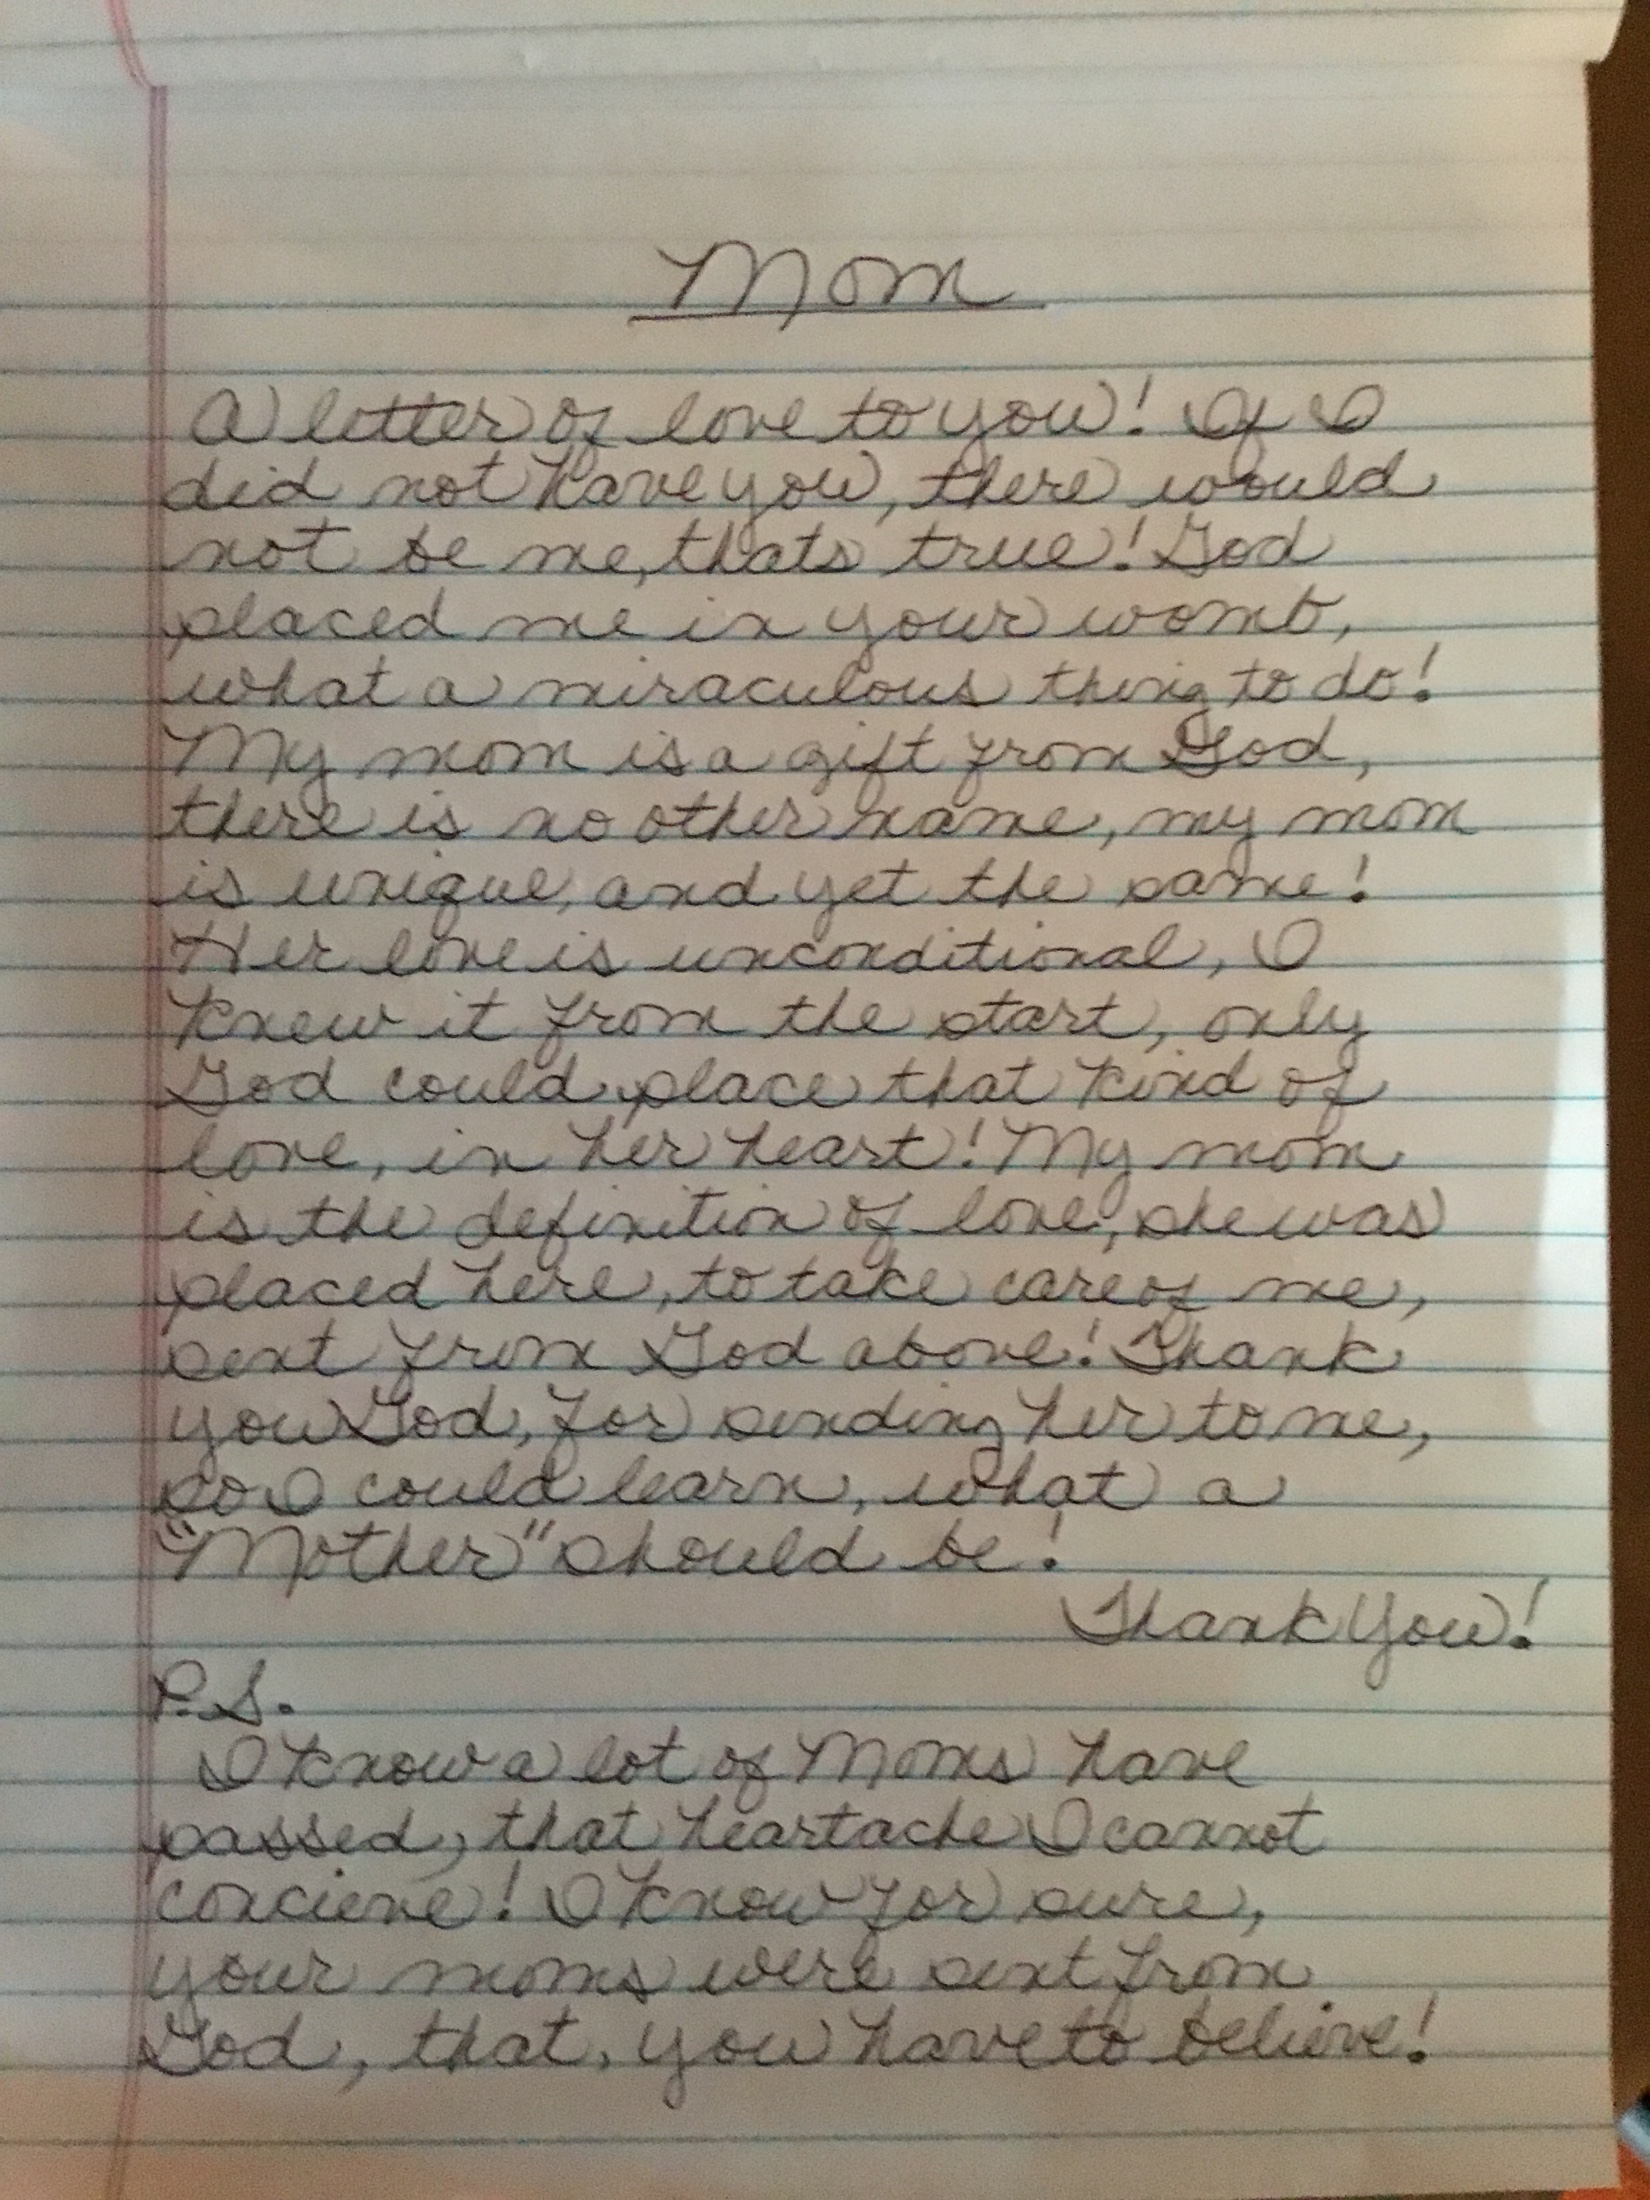 Mom
A letter of love to you! If I
did not have you, there would
not be me, thats true! God
placed me in your womb,
what a miraculous thing to do!
My mom is a gift from God,
there is no other name, my mom
is unique, and yet the same!
Her love is unconditional, I
knew it from the start, only
God could place that kind of
love, in her heart! My mom
is the definition of love, she was
placed here, to take care of me,
sent from God above! Thank
you God, for sending her to me,
so I could learn, what a
"Mother" should be!
Thank You!
P.S.
I know a lot of Moms have
passed, that heartache I cannot
concieve! I know for sure,
your moms were sent from
God, that, you have to believe!